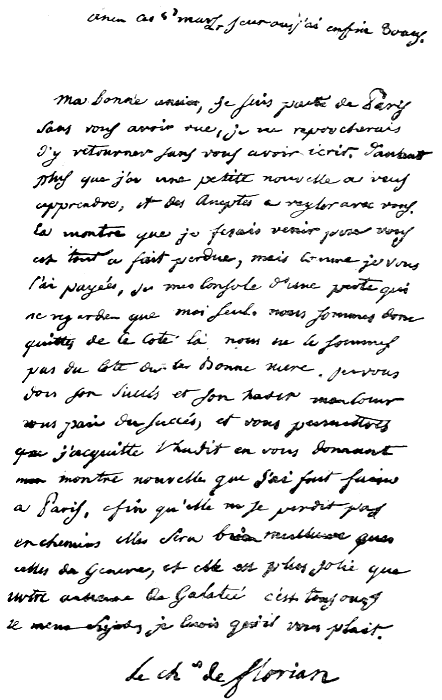 ce 8 mars jour où j'ai enfin 30 ans.
ma bonne amie, je suis parti de Paris
sans vous avoir vue, je me reprocherais
d'y retourner sans vous avoir écrit. d'autant
plus que j'ai une petite nouvelle a vous
apprendre, et des comptes a regler avec vous.
la montre que je fesais venir pour vous
est tout a fait perdue, mais comme je vous
l'ai payée, je me console d'une perte qui
ne regarde que moi seul. nous sommes donc
quittes de ce coté là, nous ne le sommes
pas du coté de la bonne mere. je vous
dois son succès et son
vous du succès, et vous permettrés
que j'acquitte en vous donnant
une montre nouvelle que j'ai fait faire
a Paris, afin qu'elle ne se perdit pas
en chemin. elle sera bien meilleure que
celles de Geneve, et elle est plus jolie que
notre ancienne de Galatée c'est toujours
le même, je crois qu'il vous plait.
le ch er de florian